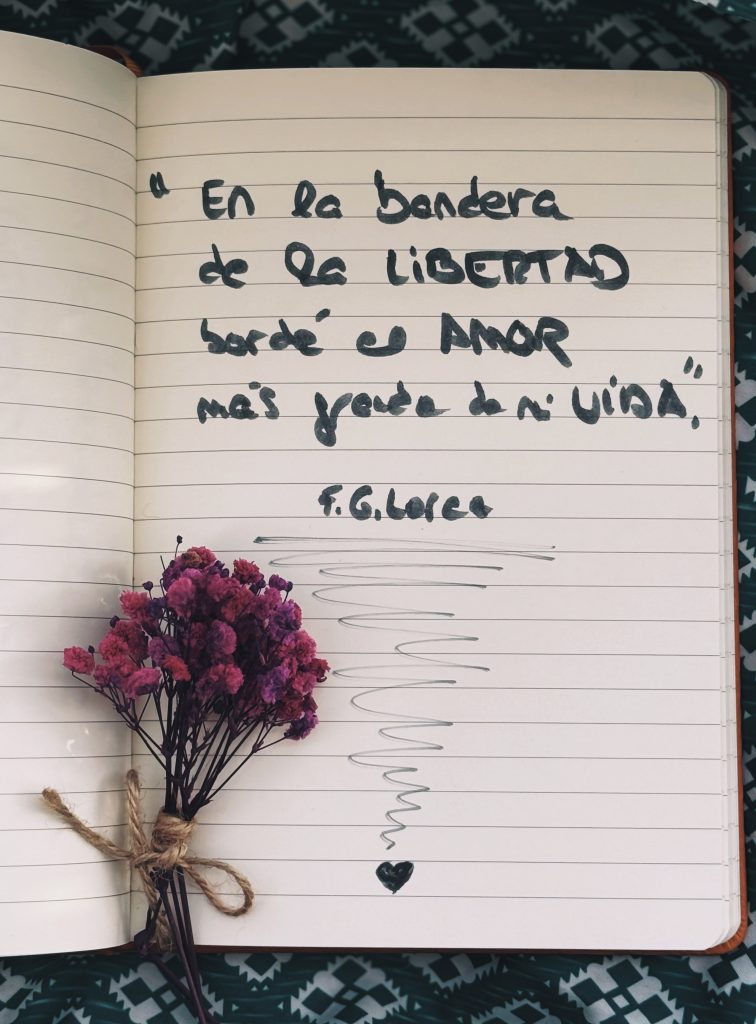 " En la bandera
de la LiBERTAD
bordé el AMOR
más grande de mi ViDA".
F.G.Lorca